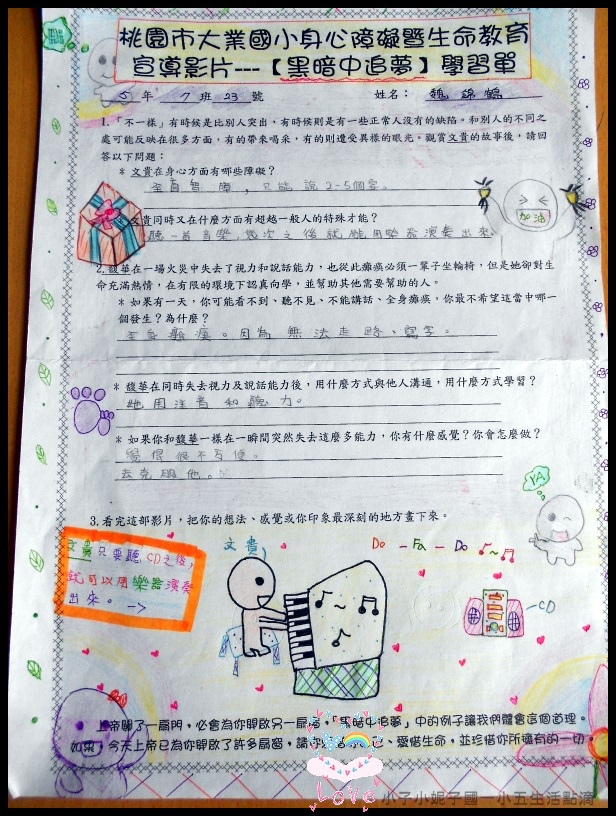 桃園市大業國小身心障礙暨生命教育
宣導影片---【黑暗中追夢】學習單
5 年 7 班 23 號 姓名： 魏錦鶴
1.「不一樣」有時候是比別人突出，有時候則是有一些正常人沒有的缺陷。和別人的不同之
處可能反映在很多方面，有的帶來喝采，有的則遭受異樣的眼光。觀賞文貴的故事後，請回
答以下問題：
* 文貴在身心方面有哪些障礙？
，只能說2-5個字。
* 文貴同時又在什麼方面有超越一般人的特殊才能？
聽一首音樂，幾次之後就能用樂器演奏出來
加油
2.馥華在一場火災中失去了視力和說話能力，也從此癱瘓必須一輩子坐輪椅，但是她卻對生
命充滿熱情，在有限的環境下認真向學，並幫助其他需要幫助的人。
* 如果有一天，你可能看不到、聽不見、不能講話、全身癱瘓，你最不希望這當中哪一
個發生？為什麼？
全身癱瘓。因為無法走路、寫字。
* 馥華在同時失去視力及說話能力後，用什麼方式與他人溝通，用什麼方式學習？
她用注音和聽力。
* 如果你和馥華一樣在一瞬間突然失去這麼多能力，你有什麼感覺？你會怎麼做？
覺得很不方便。
去克服他。
YA
3.看完這部影片，把你的想法、感覺或你印象最深刻的地方畫下來。
文貴只要聽CD之後，
就可以用樂器演奏
出來。->
文貴
Do - Fa - Do
-CD
上帝關了一扇門，必會為你開啟另一扇窗，「黑暗中追夢」中的例子讓我們體會這個道理。
如果，今天上帝已為你開啟了許多扇窗，請、愛惜生命，並珍惜你所擁有的一切。
Love
小子小妮子國一小五生活點滴